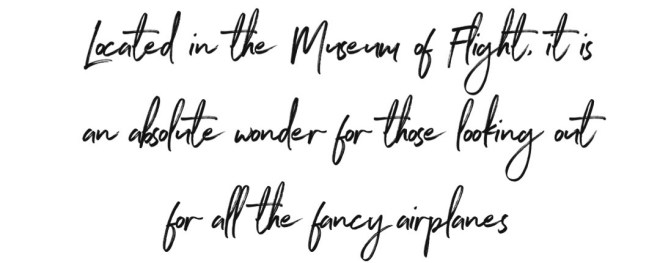 Located in the Museum of Flight, it is
an absolute wonder for those looking out
for all the fancy airplanes